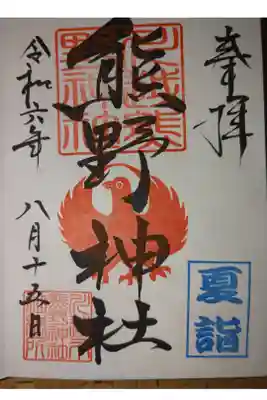 奉拝
夏詣
熊野神社
令和六年
八月十五日